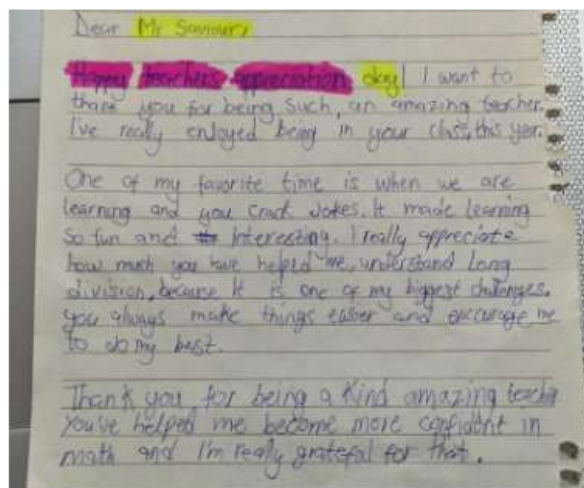 Dear Mr Saviour,
Happy teachers appreciation day! I want to
thank you for being such, an amazing teacher.
I've really enjoyed being in your class, this year.
One of my favorite time is when we are
learning and you crack Jokes. It made learning
so fun and interesting. I really appreciate
how much you have helped me, understand Long
division, because it is one of my biggest challenges.
you always make things easier and encourage me
to do my best.
Thank you for being a Kind amazing teacher
You've helped me become more confident in
math and I'm really grateful for that.